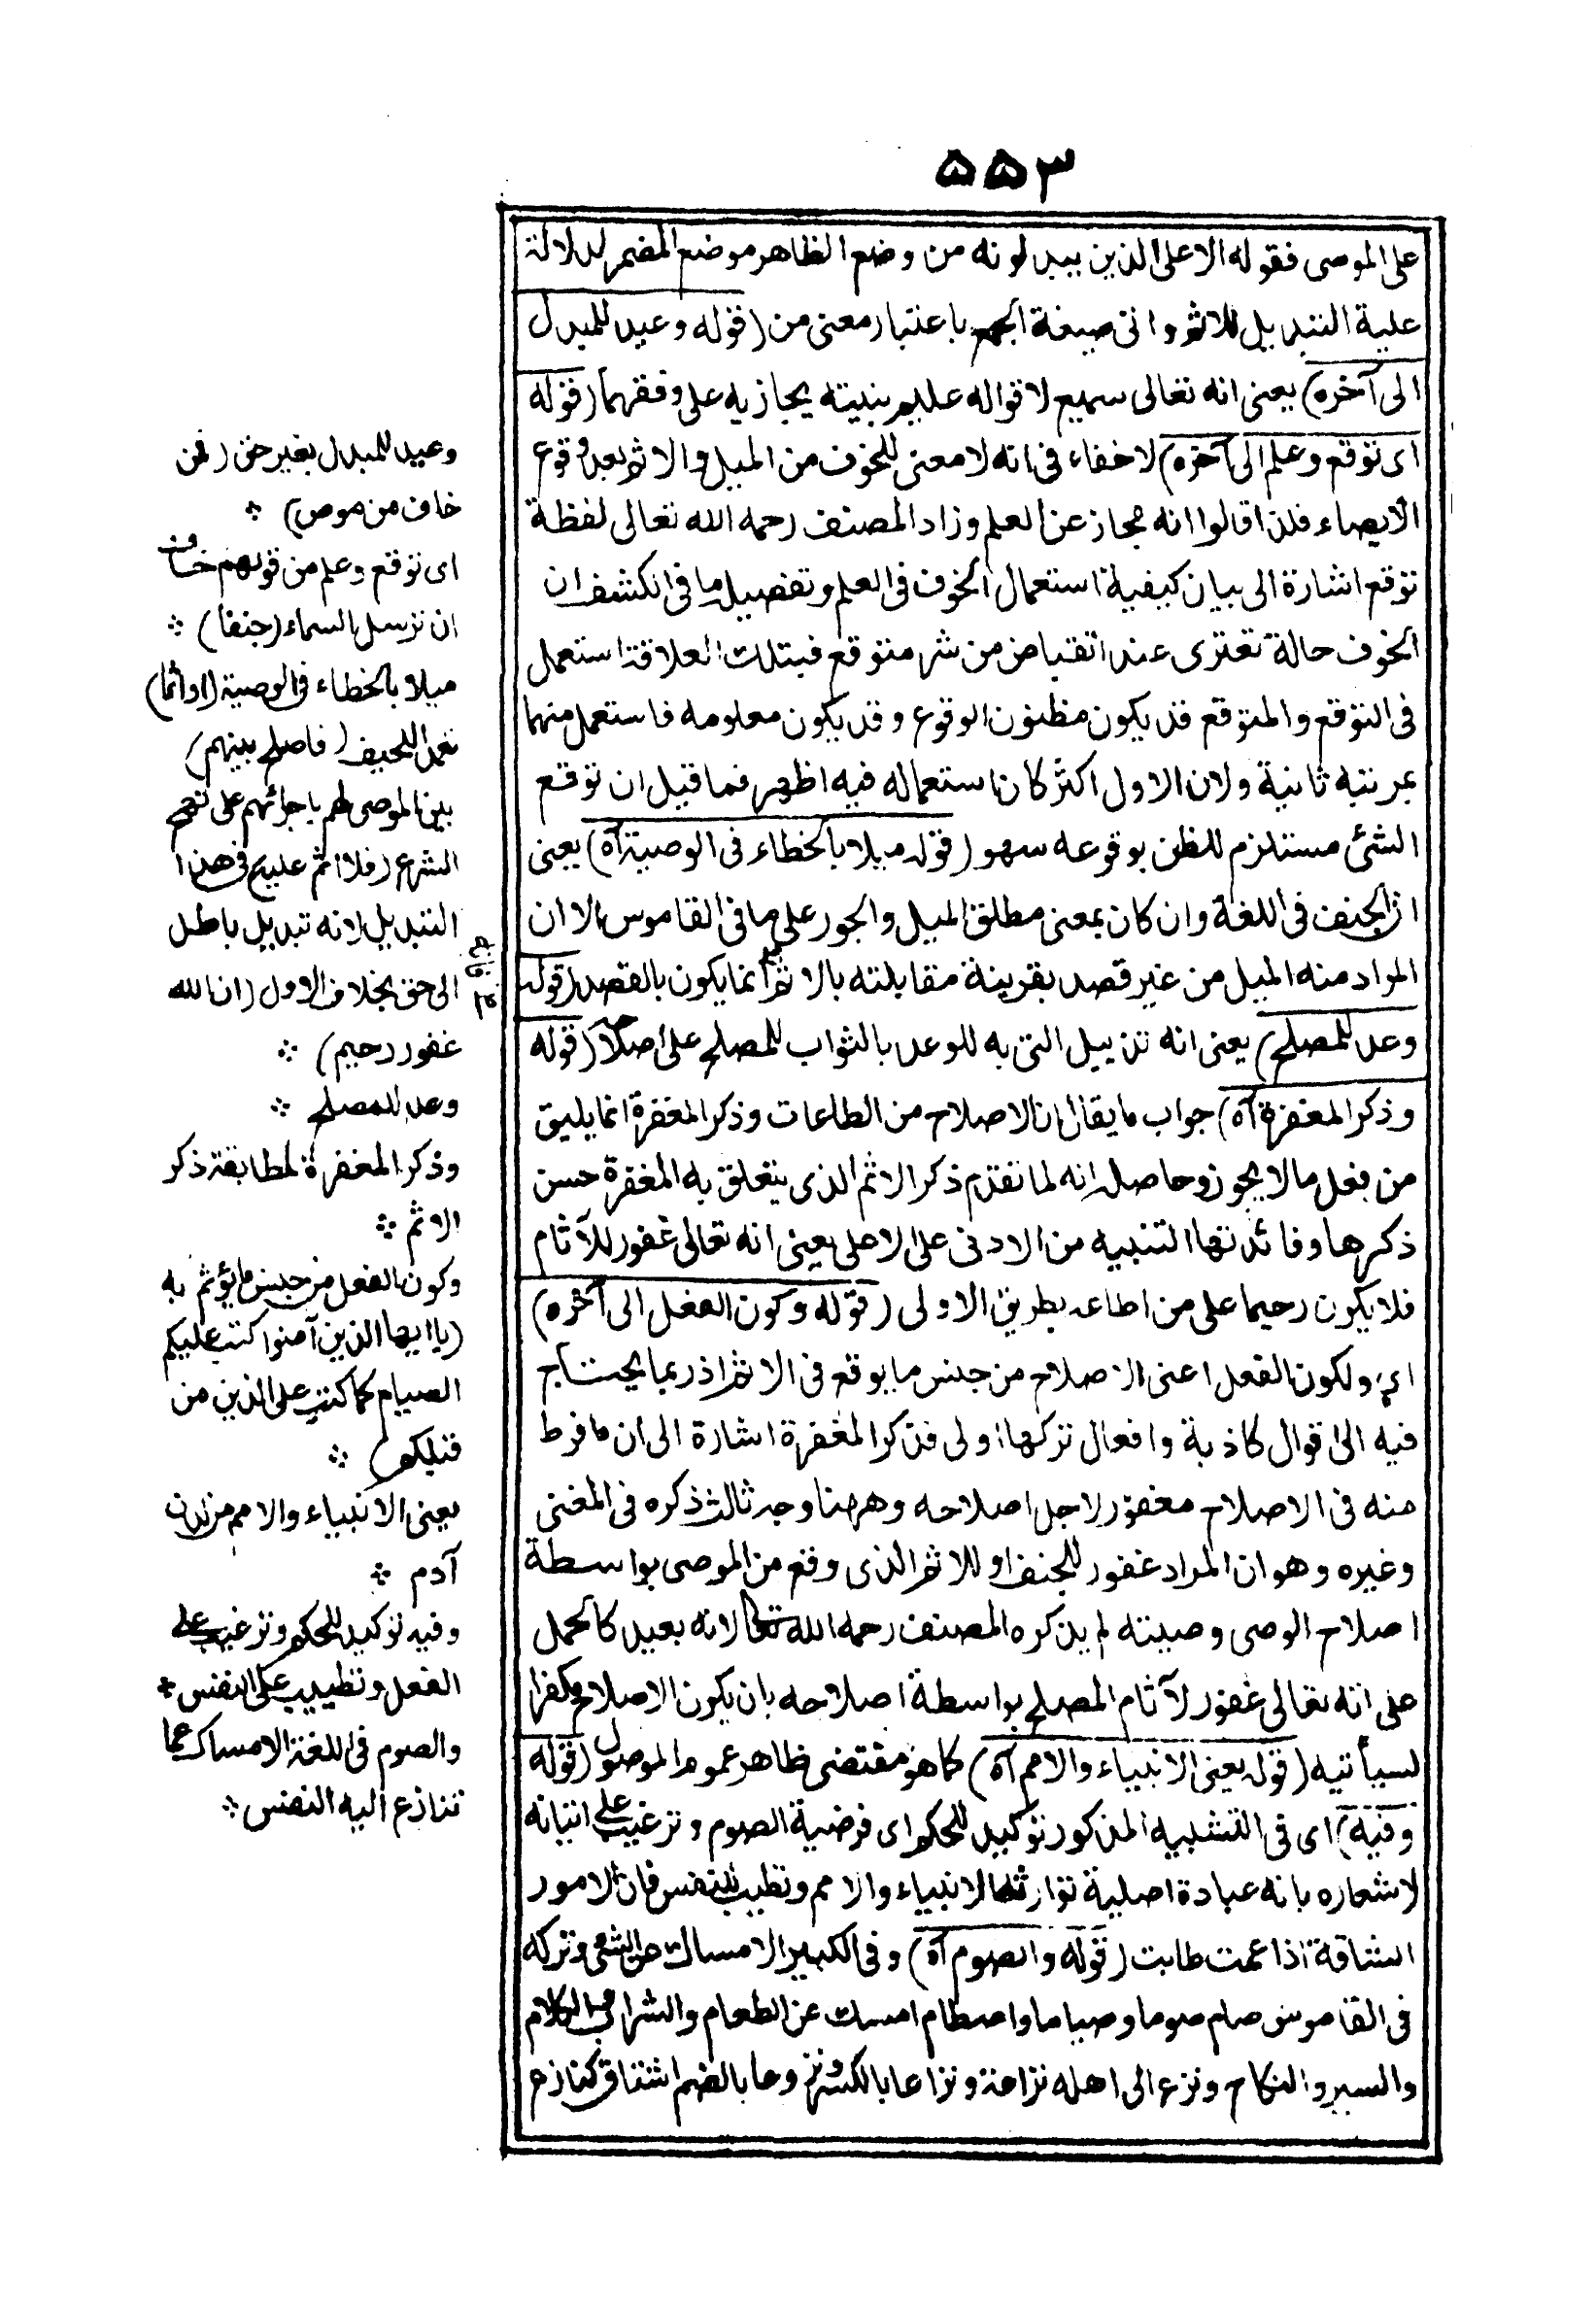 ٥٥٣
على الموصى فقوله الا على الذين يبدلونه من وضع الظاهر موضع المضمر لدلالة
علية التبديل للاثم واتى صيغة الجمع باعتبار معنى من (قوله وعيد للمبدل
الى آخره) يعنى انه تعالى سميع لاقواله عليم بنيته يجازيه على وفقهما (قوله
اى توقع وعلم الى آخره) لاخفاء فى انه لا معنى للخوف من الميل والاثم بعد وقوع
الايصاء فلذا قالوا انه مجاز عن العلم وزاد المصنف رحمه الله تعالى لفظة
توقع اشارة الى بيان كيفية استعمال الخوف فى العلم وتفصيل ما فى الكشف ان
الخوف حالة تعترى عند انقباض من شر متوقع فبتلك العلاقة استعمل
فى التوقع والمتوقع قد يكون مظنون الوقوع وقد يكون معلومه فاستعمل منهما
بمرتبة ثانية ولان الاول اكثر كان استعماله فيه اظهر فما قيل ان توقع
الشئ مستلزم للظن بوقوعه سهو (قوله ميلا بالخطاء فى الوصية آه) يعنى
ان الجنف فى اللغة وان كان بمعنى مطلق الميل والجور على ما فى القاموس الا ان
المراد منه الميل من غير قصد بقرينة مقابلته بالاثم انما يكون بالقصد (قوله
وعد للمصلح) يعنى انه تذييل اتى به للوعد بالثواب للمصلح على اصلاحه (قوله
وذكر المغفرة آه) جواب ما يقال ان الاصلاح من الطاعات وذكر المغفرة انما يليق
من فعل ما لا يجوز وحاصله انه لما تقدم ذكر الاثم الذى يتعلق به المغفرة حسن
ذكرها وفائدتها التنبيه من الادنى على الاعلى يعنى انه تعالى غفور للآثام
فلا يكون رحيما على من اطاعه بطريق الاولى (قوله وكون الفعل الى آخره)
اى ولكون الفعل اعنى الاصلاح من جنس ما يوقع فى الاثم اذ ربما يحتاج
فيه الى اقوال كاذبة وافعال تركها اولى فذكر المغفرة اشارة الى ان ما فرط
منه فى الاصلاح مغفور لاجل اصلاحه وههنا وجه ثالث ذكره فى المغنى
وغيره وهو ان المراد غفور للجنف او للاثم الذى وقع من الموصى بواسطة
اصلاح الوصى وصيته لم يذكره المصنف رحمه الله تعالى لانه بعيد كالحمل
على انه تعالى غفور لآثام المصلح بواسطة اصلاحه بان يكون الاصلاح مكفرا
لسيأتيه (قوله يعنى الانبياء والامم آه) كما هو مقتضى ظاهر عموم الموصول (قوله
وفيه) اى فى التشبيه المذكور توكيد للحكم اى فرضية الصوم وترغيب على اتيانه
لاشعاره بانه عبادة اصلية توارثها الانبياء والامم وتطييب للنفس فان الامور
الشاقة اذا عمت طابت (قوله والصوم آه) وفى الكبير الامساك عن الشئ وتركه
فى القاموس صام صوما وصياما واصطام امسك عن الطعام والشراب والكلام
والسير والنكاح ونزع الى اهله نزاعة ونزاعا بالكسر ونزوعا بالضم اشتاق كنازع
وعيد للمبدل بغير حق (فمن
خاف من موص) ؞
اى توقع وعلم من قولهم خاف
ان ترسل السماء (جنفا) ؞
ميلا بالخطاء فى الوصية (او اثما)
تعمدا للحيف (فاصلح بينهم)
بين الموصى لهم باجرائهم على نهج
الشرع (فلا اثم عليه) فى هذا
التبديل لانه تبديل باطل
الى حق بخلاف الاول (ان الله
غفور رحيم) ؞
وعد للمصلح ؞
وذكر المغفرة لمطابقة ذكر
الاثم ؞
وكون الفعل من جنس ما يؤثم به
(يا ايها الذين آمنوا كتب عليكم
الصيام كما كتب على الذين من
قبلكم) ؞
يعنى الانبياء والامم من لدن
آدم ؞
وفيه توكيد للحكم وترغيب على
الفعل وتطييب على النفس ؞
والصوم فى اللغة الامساك عما
تنازع اليه النفس ؞